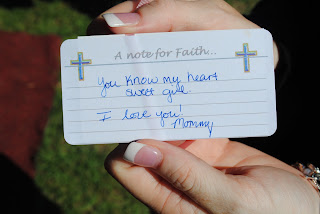 A note for Faith...
You know my heart
sweet girl
I love you!
Mommy